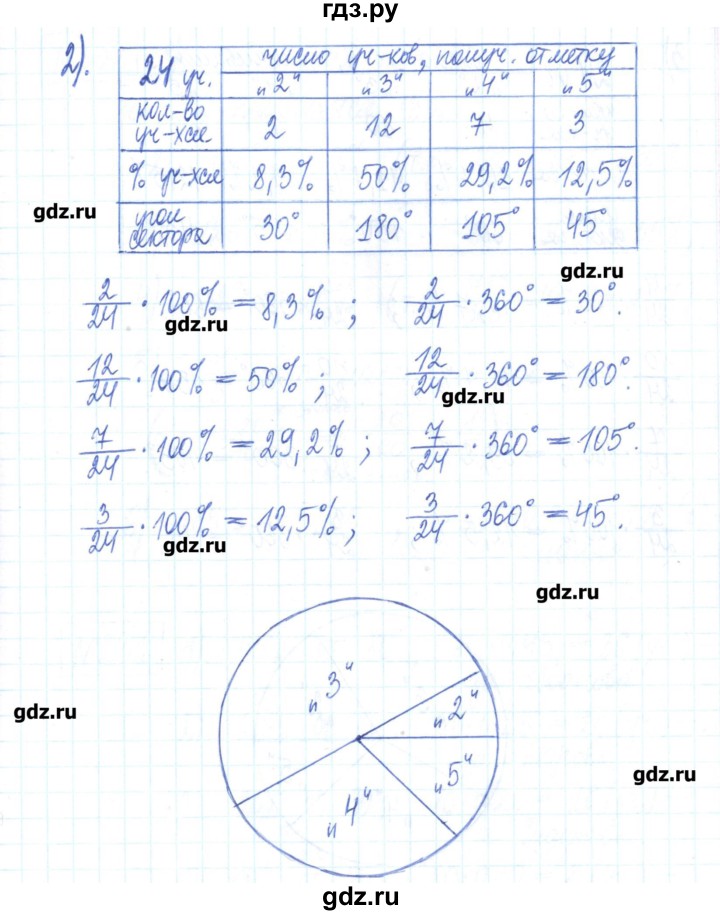 гдз.ру
2).
24 уч. число уч-ков, получ. отметку
„2“ „3“ „4“ „5“
кол-во уч-хся 2 12 7 3
% уч-хся 8,3% 50% 29,2% 12,5%
угол сектора 30° 180° 105° 45°
gdz.ru
gdz.ru
2/24 · 100% = 8,3% ; 2/24 · 360° = 30°.
gdz.ru
12/24 · 100% = 50% ; 12/24 · 360° = 180°.
gdz.ru
7/24 · 100% = 29,2% ; 7/24 · 360° = 105°.
3/24 · 100% = 12,5% ; 3/24 · 360° = 45°.
gdz.ru
gdz.ru
„3“
„2“
gdz.ru
„5“
gdz.ru
„4“
gdz.ru